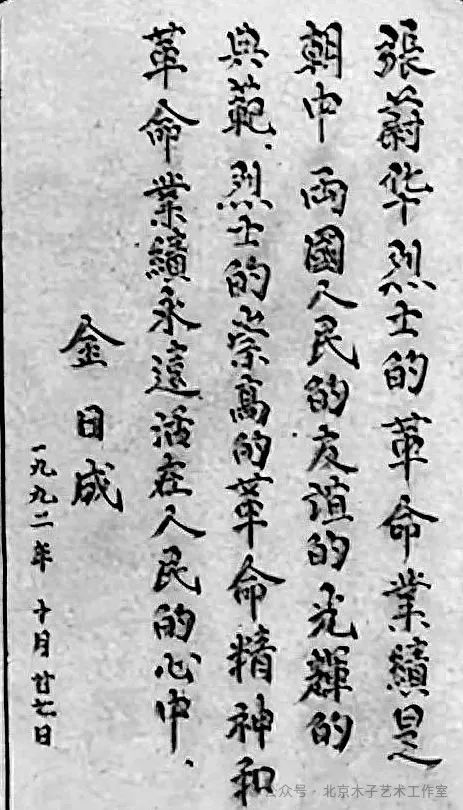 張蔚华烈士的革命業績是
朝中両國人民的友誼的光輝的
典範、烈士的崇高的革命精神和
革命業績永遠活在人民的心中、
金日成
一九九二年 十月廿七日
公众号·北京木子艺术工作室